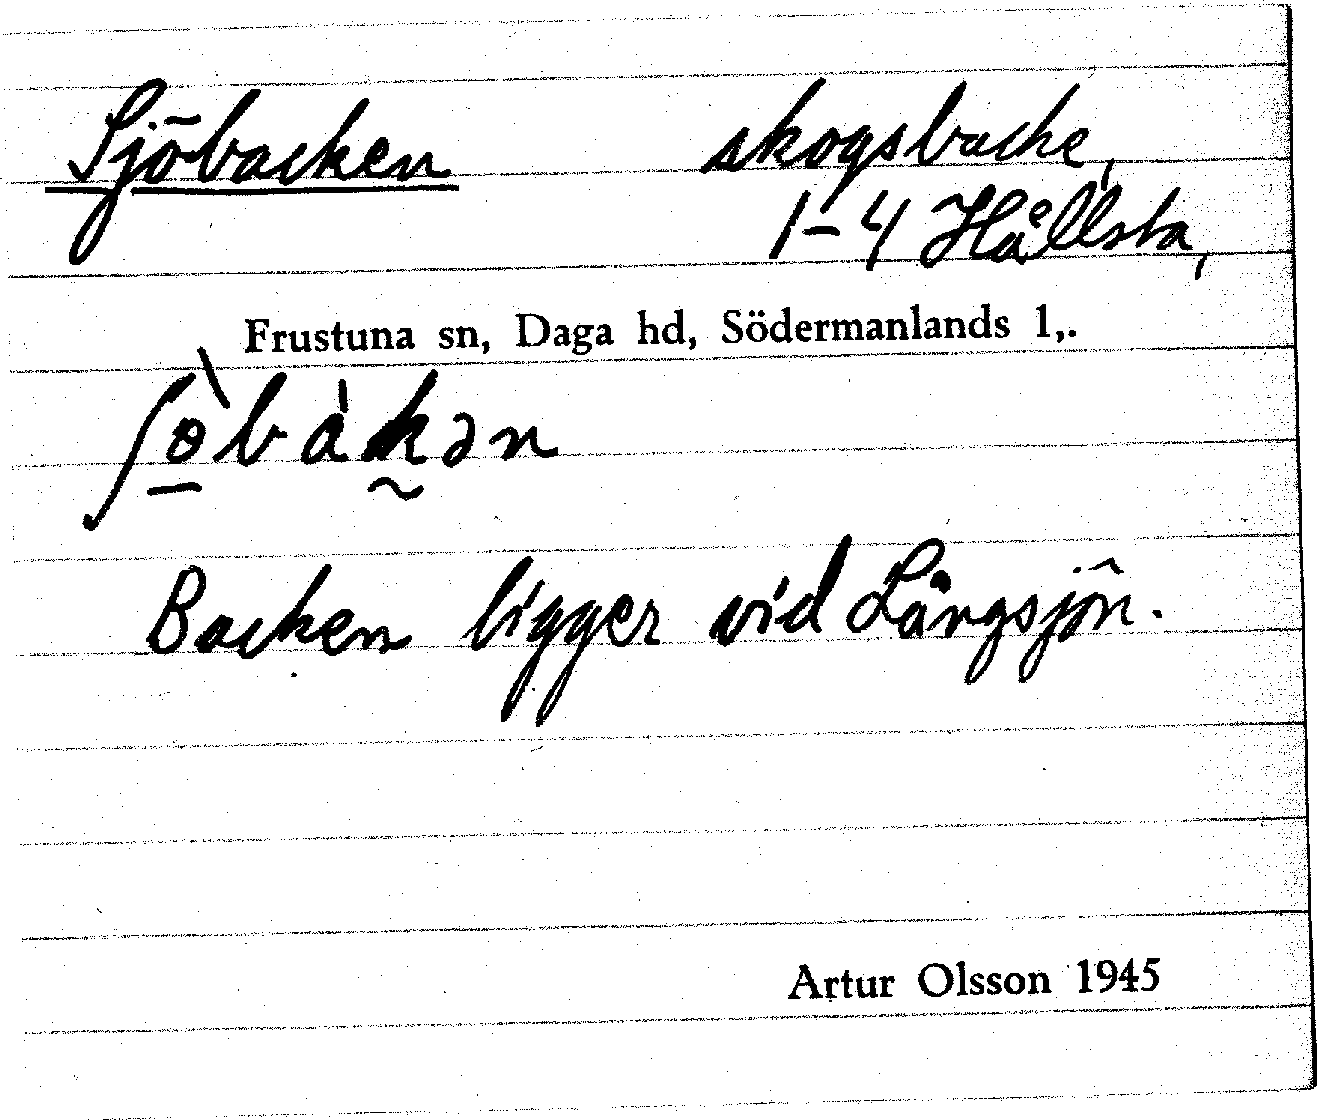 Sjöbacken skogsbacke,
1-4 Hållsta,
Frustuna sn, Daga hd, Södermanlands l,.
ʃö̀bàkən
Backen ligger vid Långsjön.
Artur Olsson 1945